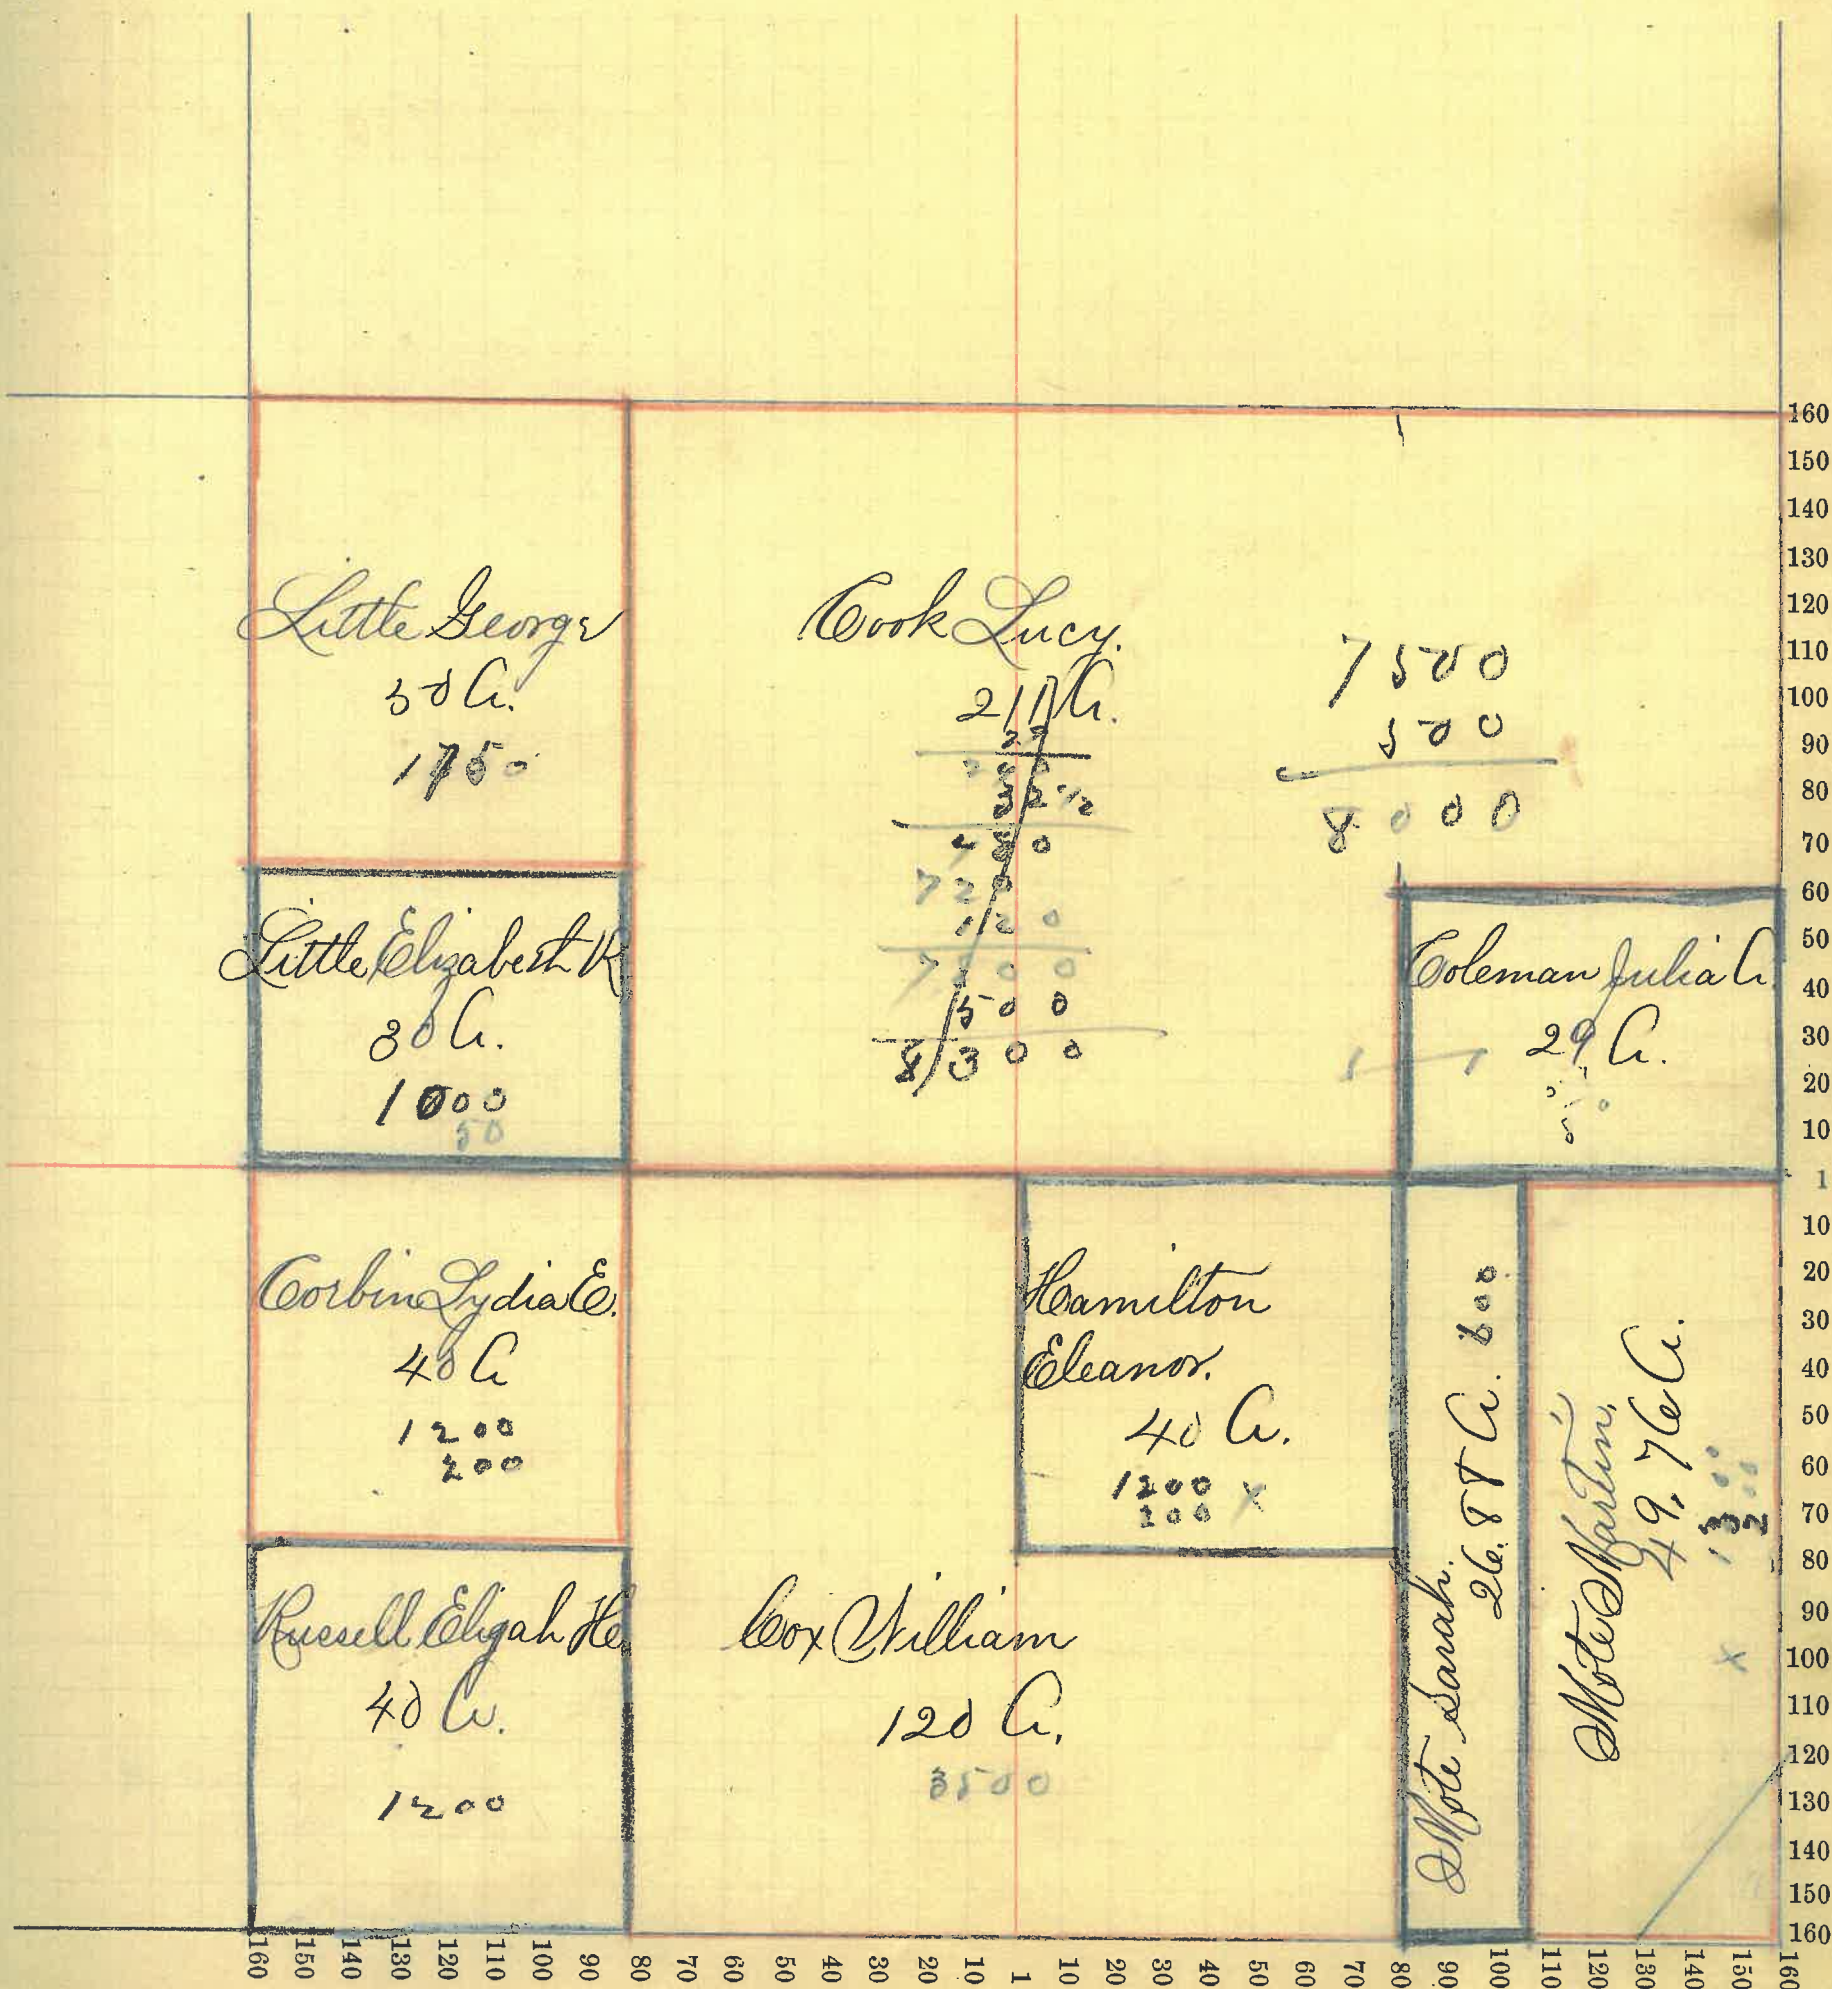 Little George
50 A.
1750
Cook Lucy.
211 A.
32 1/2
480
720
120
7800
500
8300
7500
500
8000
Little Elizabeth K
30 A.
1000
50
Coleman Julia A
29 A.
Corbin Lydia E.
40 A
1200
200
Hamilton
Eleanor.
40 A.
1200 X
200
Mote Sarah.
26.88 A. 800
Mote Martin,
49.76 A.
1300
200
X
Russell Elijah H
40 A.
1200
Cox William
120 A.
3500
160
150
140
130
120
110
100
90
80
70
60
50
40
30
20
10
1
10
20
30
40
50
60
70
80
90
100
110
120
130
140
150
160
160 150 140 130 120 110 100 90 80 70 60 50 40 30 20 10 1 10 20 30 40 50 60 70 80 90 100 110 120 130 140 150 160